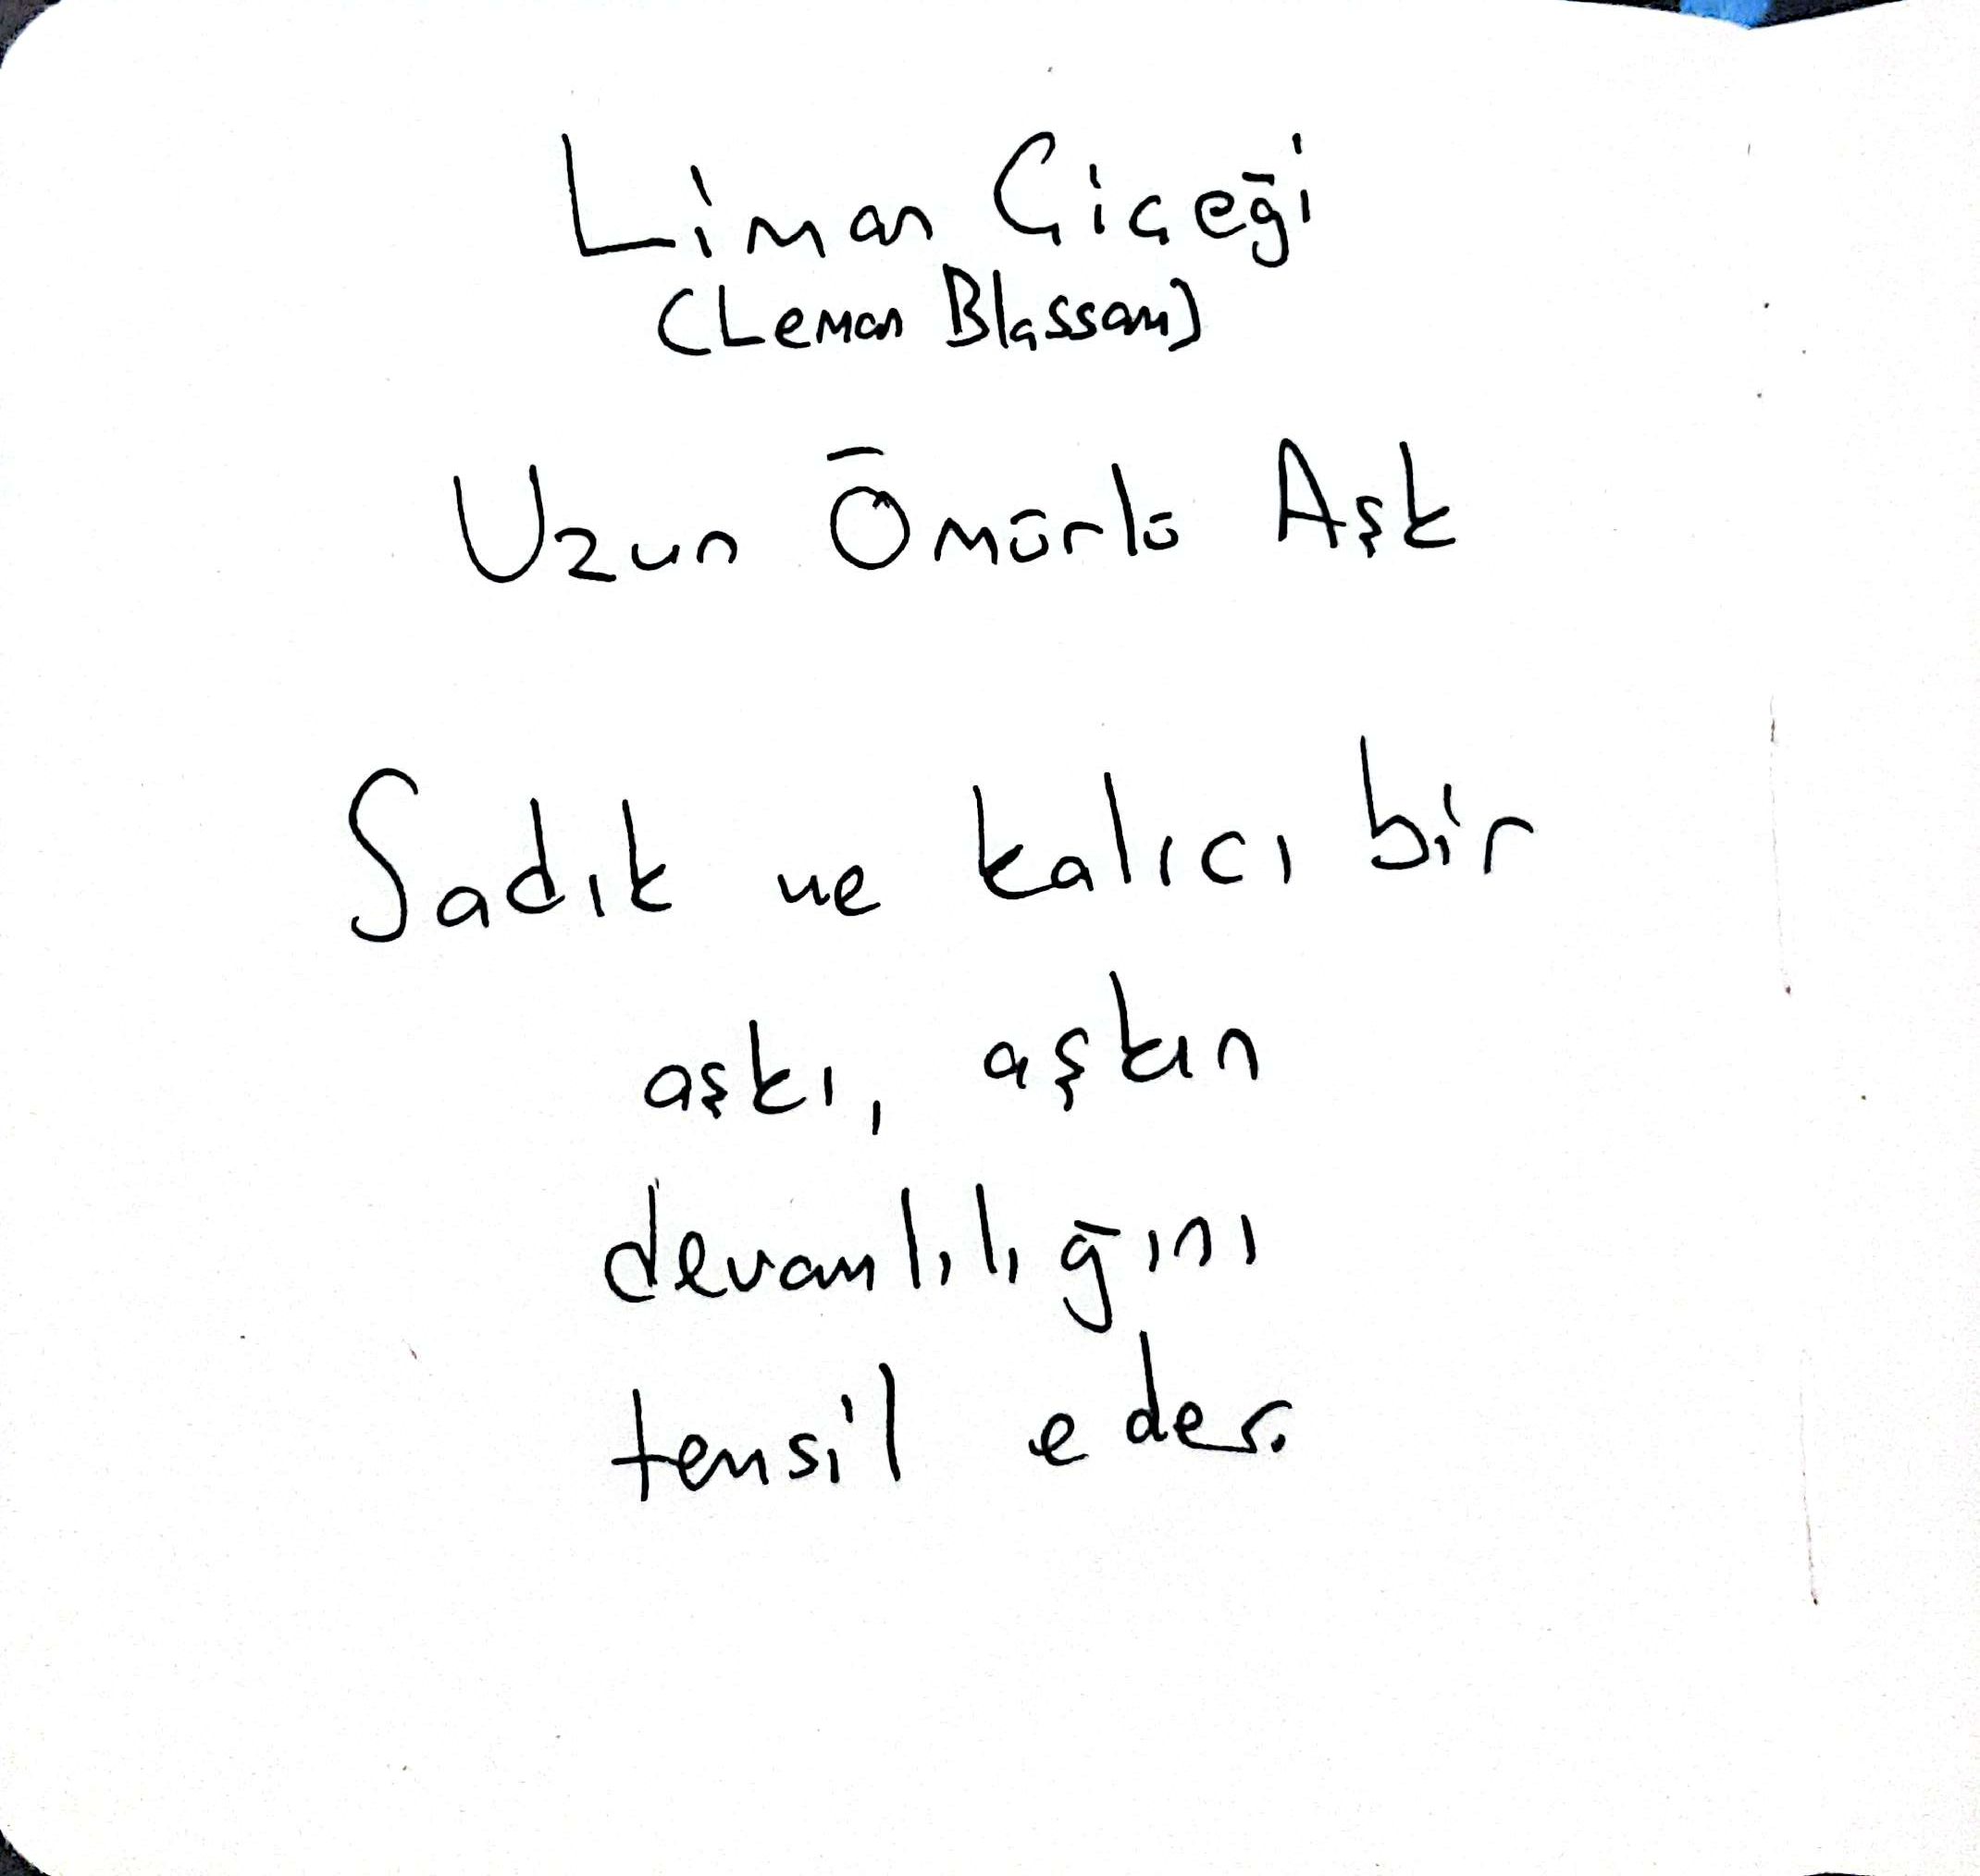 Liman Çiçeği
(Leman Blassam)
Uzun Ömürlü Aşk
Sadık ve kalıcı bir
aşkı, aşkın
devamlılığını
temsil eder.